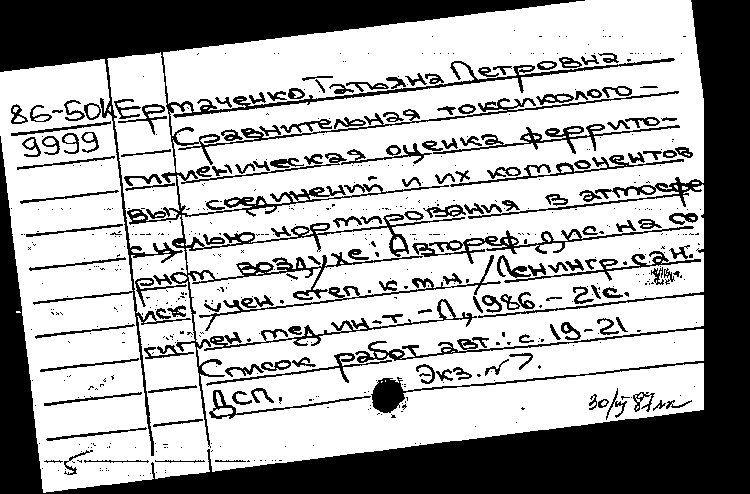 86-50к Ермаченко, Татьяна Петровна.
9999 Сравнительная токсиколого-
гигиеническая оценка феррито-
вых соединений и их компонентов
с целью нормирования в атмосфе
рном воздухе: Автореф. дис. на со-
иск. учен. степ. к.м.н. / Ленингр. сан.-
гигиен. мед. ин-т. - Л., 1986. - 21 с.
Список работ авт.: с. 19-21.
ДСП. Экз. №7.
30/III 87